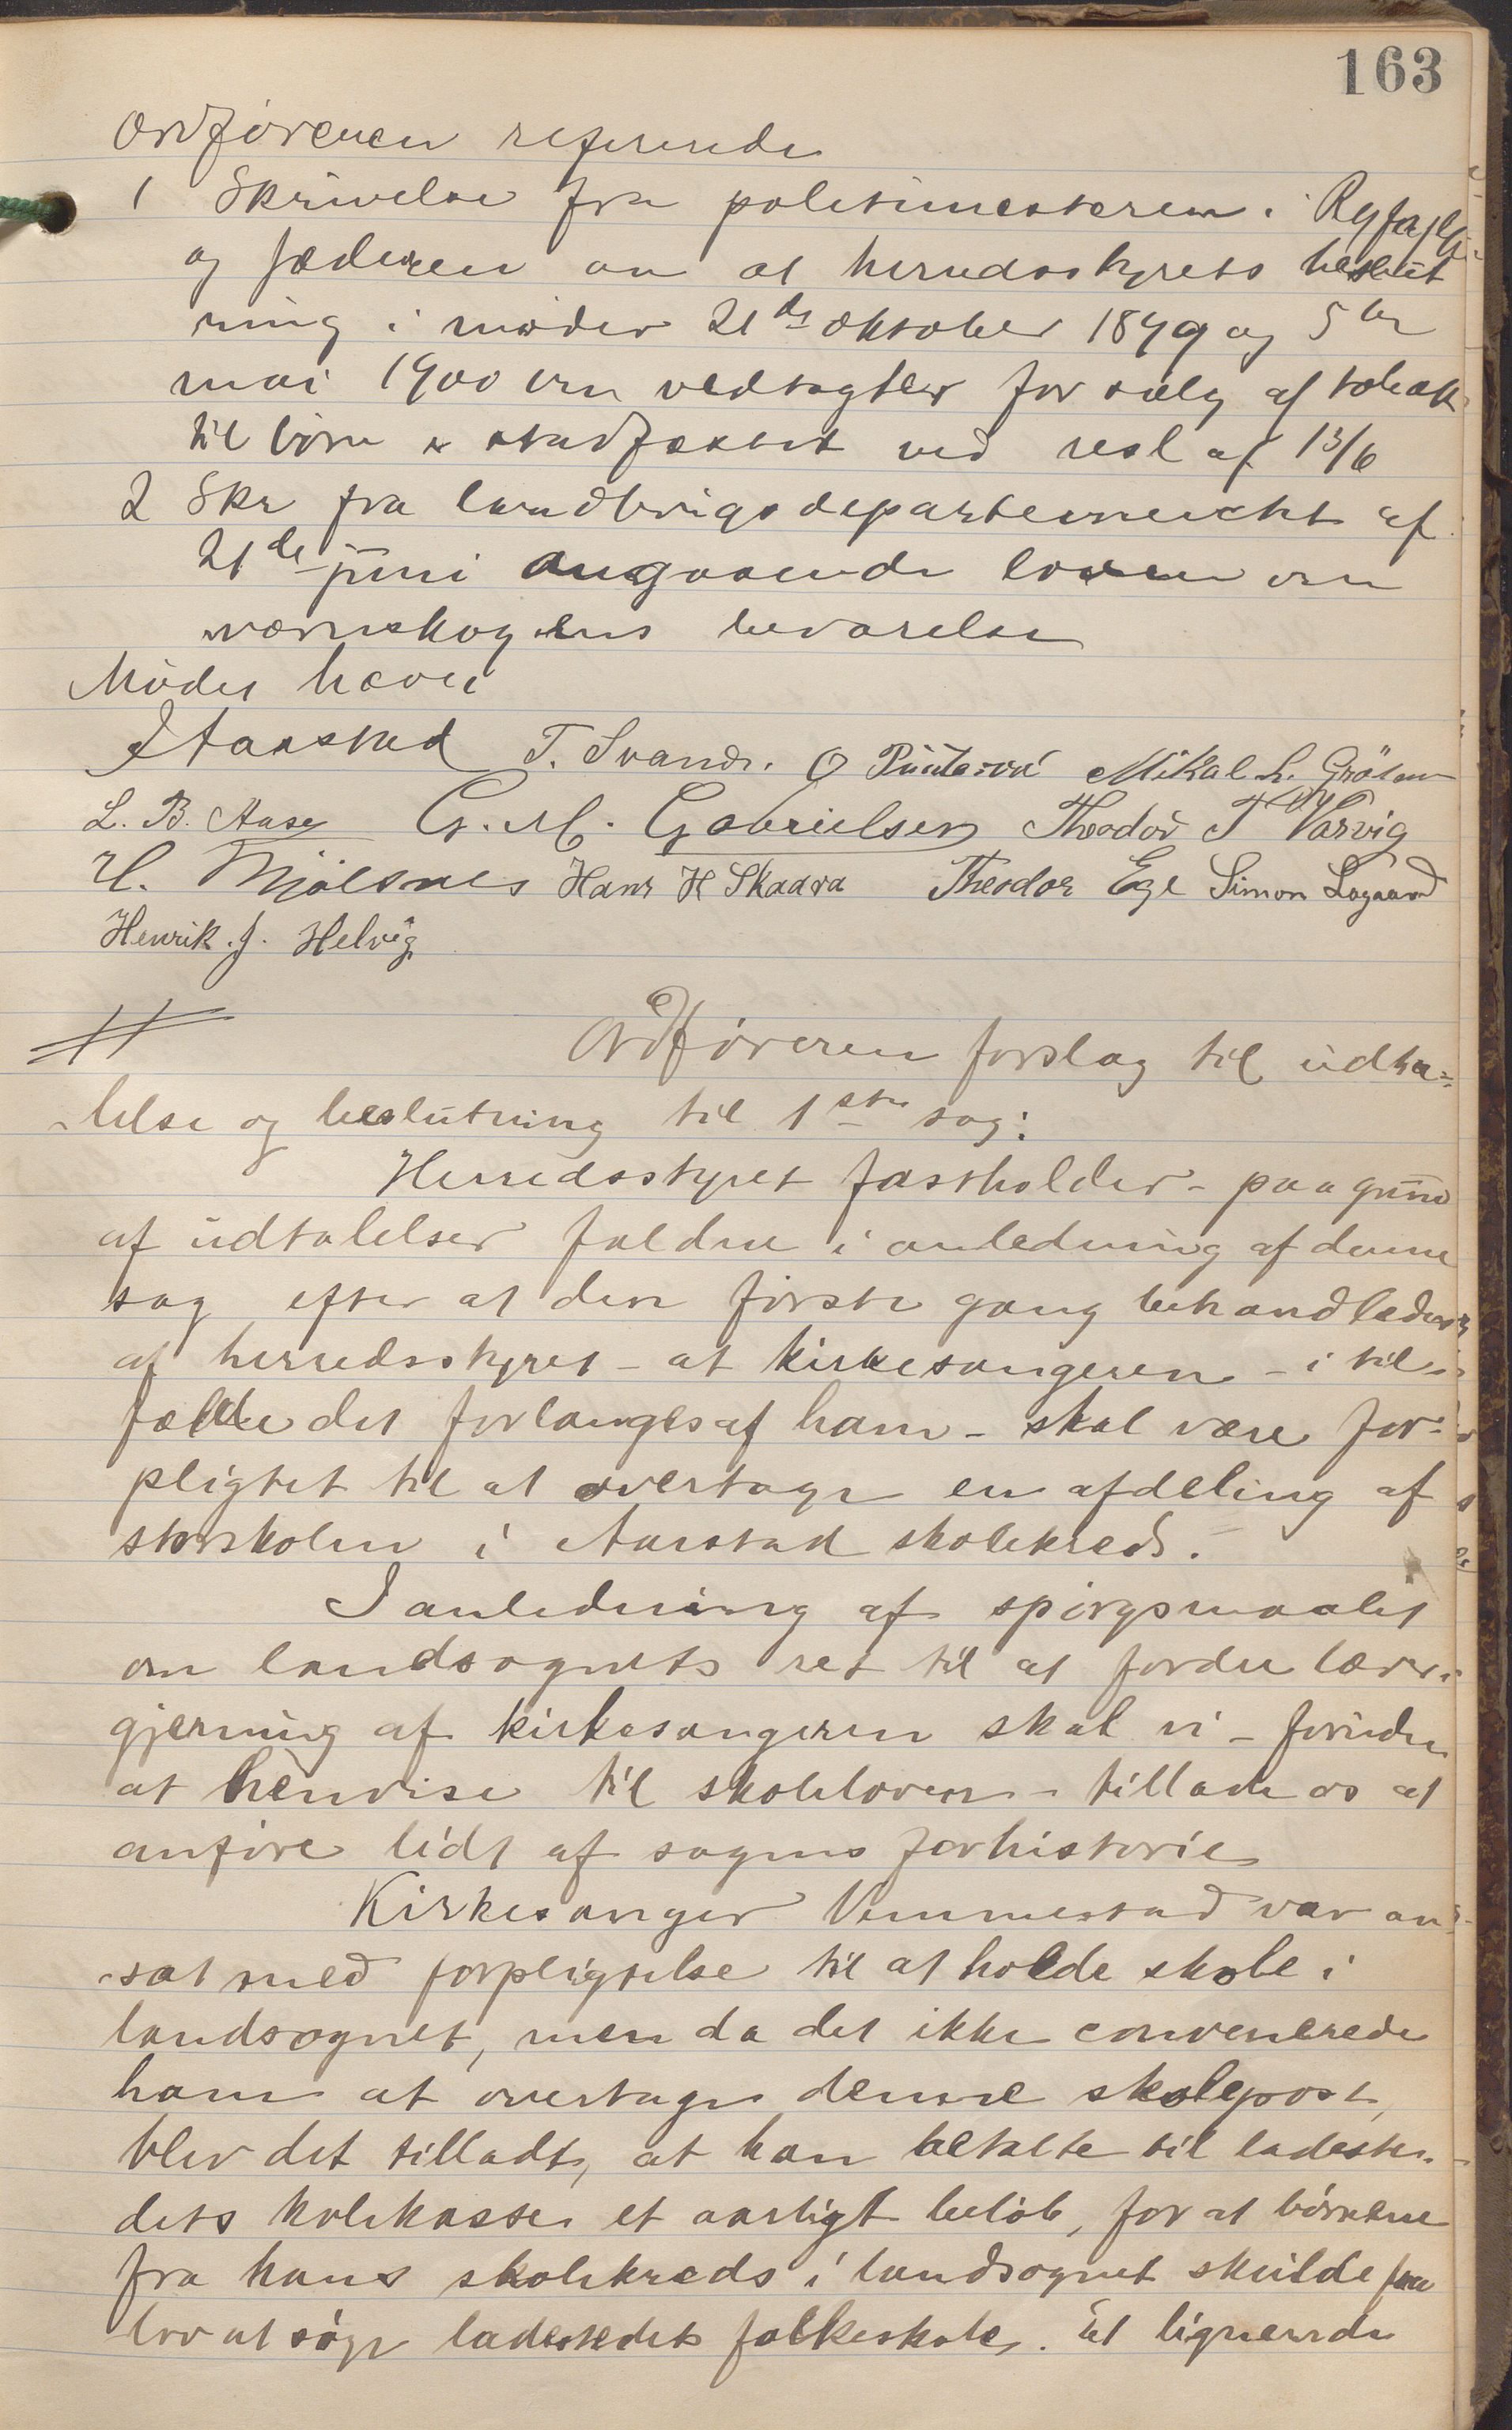 163
Ordföreren refererede
1 Skrivelse fra politimesteren i Ryfylke
og Jæderen om at herredsstyrets beslut
ning i møder 21de oktober 1899 og 5te
mai 1900 om vedtægter for salg af tobak
til börn er stadfæstet ved resl af 13/6
2 Skr fra landbrugsdepartementet af
21de juni angaaende loven om
værnskogens bevarelse
Mödet hævet
Aarstad T. Svanes. O Puntervol Mikal L. Grösem
L. B. Aase G. M. Gabrielsen Theodor T Varvig
H. Mjölsnes Hans H Skaara Theodor Ege Simon Løgaard
Henrik. J. Helvig
Ordföreren forslag til udta=
-lelse og beslutning til 1ste sag:
Herredsstyret fastholder - paa grund
af udtalelser faldne i anledning af denne
sag efter at den förste gang behandledes
af herredsstyret - at kirkesangeren - i til-
fælde det forlanges af ham - skal være for-
pligtet til at overtage en afdeling af
storskolen i Aarstad skolekreds.
I anledning af spörgsmaalet
om landsognets ret til at fordre lærer-
gjerning af kirkesangeren skal vi - foruden
at henvise til skoleloven - tillade os at
anföre lidt af sagens forhistorie
Kirkesanger Vemmestad var an-
sat med forpligtelse til at holde skole i
landsognet, men da det ikke convenerede
ham at overtage denne skolepost,
blev det tilladt, at han betalte til ladeste-
dets kolekasse et aarligt belöb, for at börnene
fra hans skolekreds i landsognet skulde faa
lov at söge ladestedets folkeskole. Et lignende